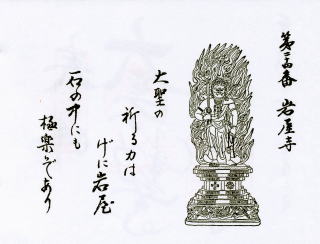 第四十五番 岩屋寺
大聖の
祈る力は
げに岩屋
石の中にも
極楽ぞあり